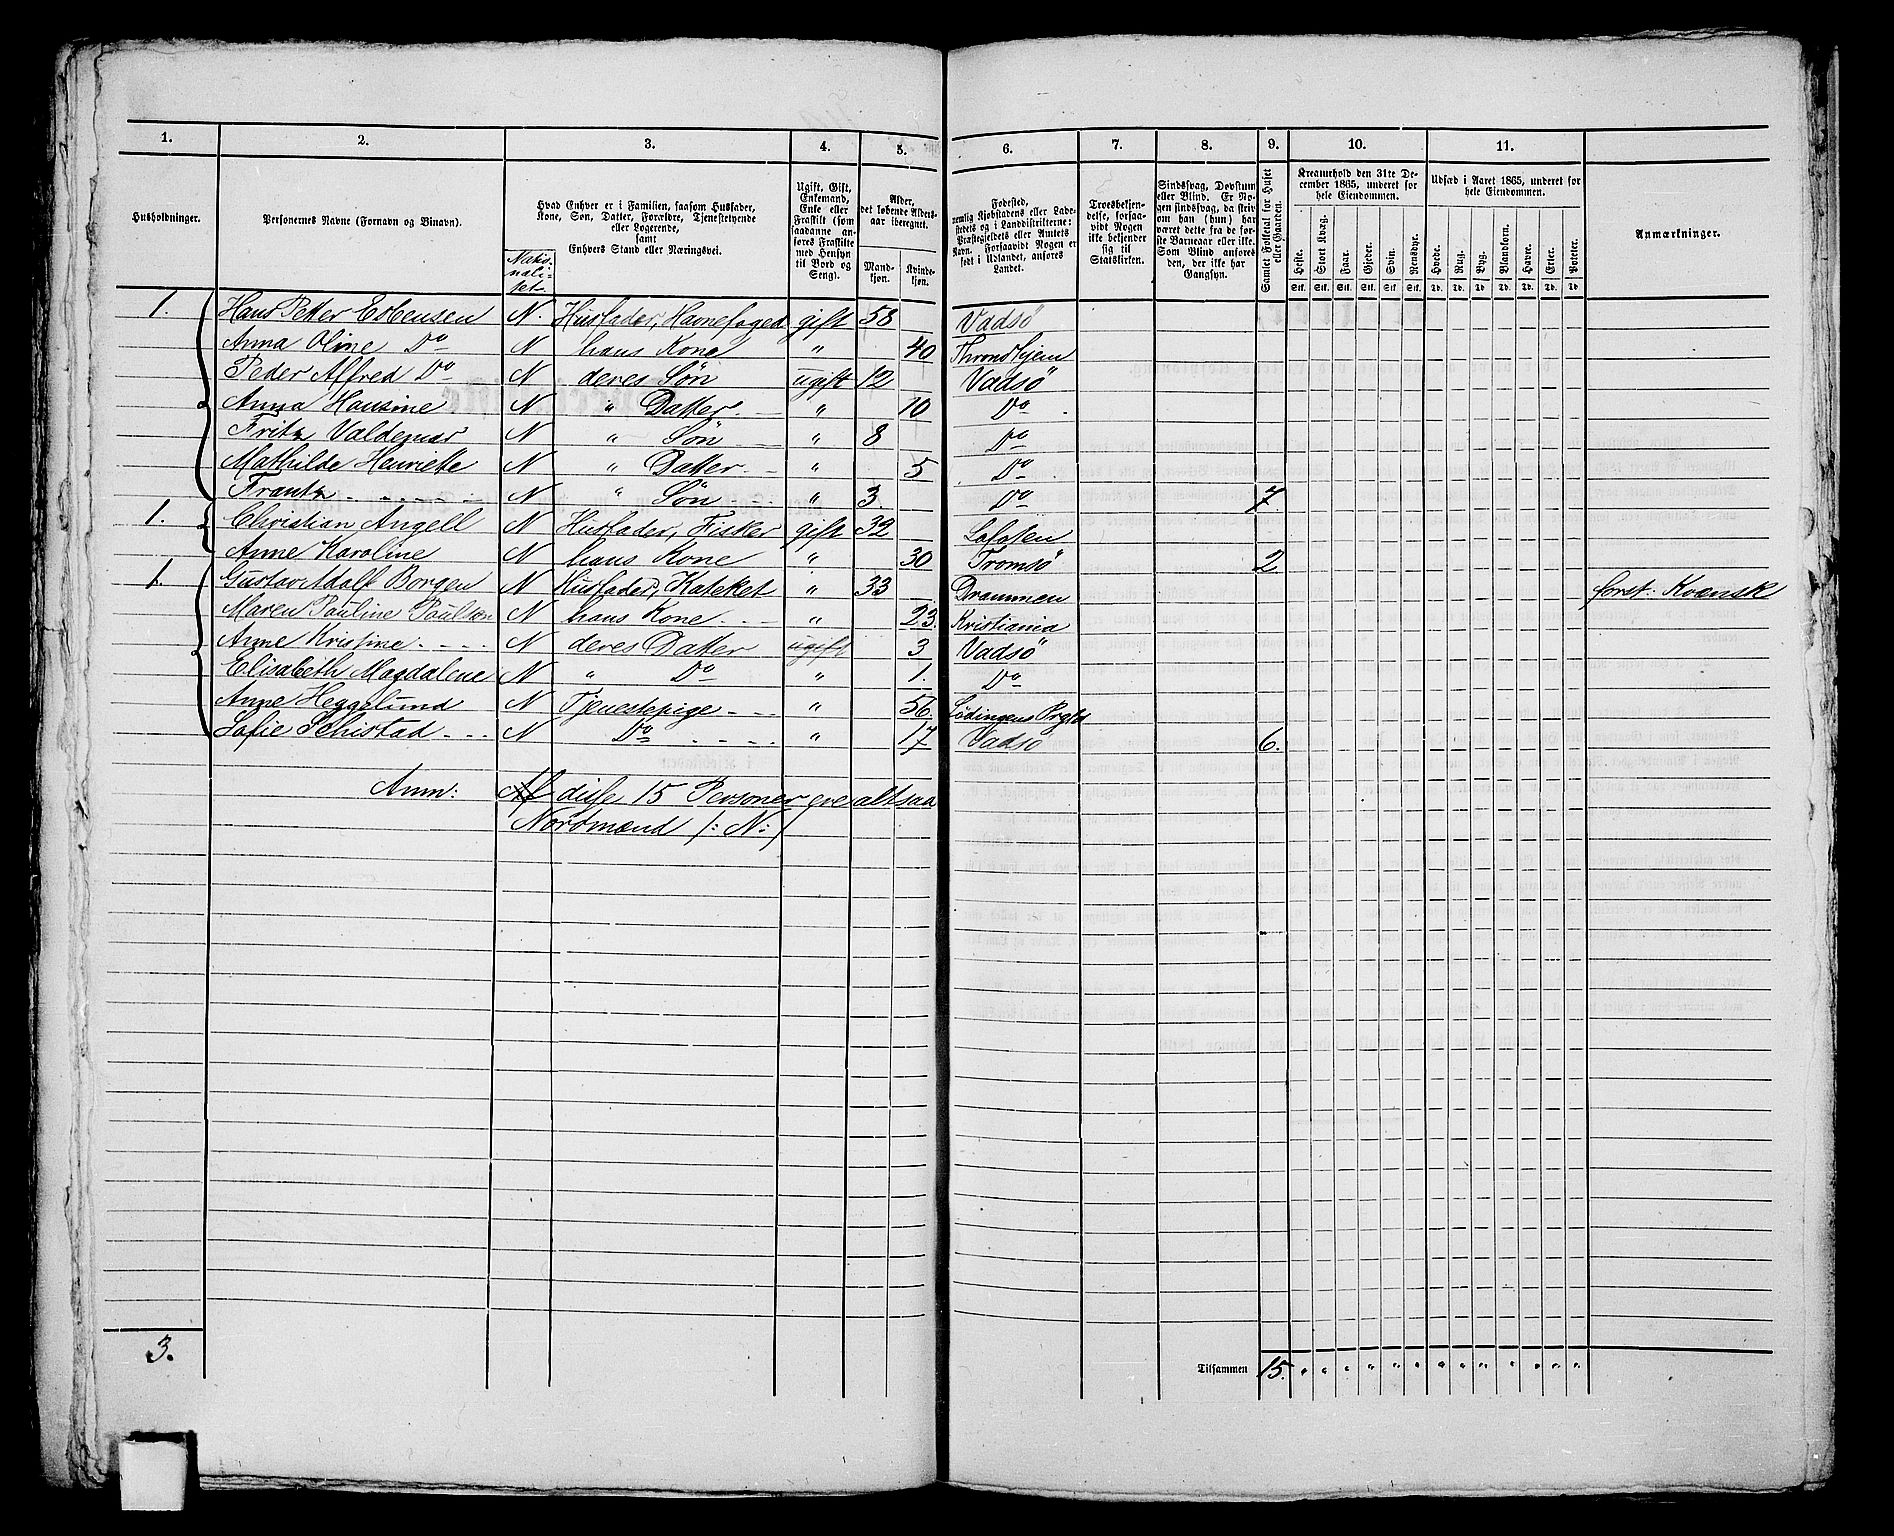 1. 2. 3. 4. 5. 6. 7. 8. 9. 10. 11.
Husholdninger.
Personernes Navne (Fornavn og Binavn).
Hvad Enhver er i Familien, saasom Husfader,
Kone, Søn, Datter, Forældre, Tjenestetyende
eller Logerende,
samt
Enhvers Stand eller Næringsvei.
Natio-
nali-
tet
Ugift, Gift,
Enkemand,
Enke eller
Fraskilt (som
saadanne an-
føres Fraskilte
med Hensyn
til Bord og
Seng).
Alder,
det løbende Alders-
aar iberegnet.
Mand-
kjøn.
Kvinde-
kjøn.
Fødested,
nemlig Kjøbstadens eller Lade-
stedets og i Landdistrikterne:
Præstegjeldets eller Amtets
Navn. Forsaavidt Nogen er
født i Udlandet, anføres
Landet.
Troesbekjen-
delse, forsaa-
vidt Nogen
ikke bekjender
sig til
Statskirken.
Sindssvag, Døvstum
eller Blind. Er No-
gen sindssvag, da skriv
om han (hun) har
været dette fra de før-
ste Barneaar eller ikke.
Som Blind anføres
den, der ikke har
Gangsyn.
Samlet Folketal for Huset
eller Gaarden.
Kreaturhold den 31te De-
cember 1865, underet for
hele Eiendommen.
Heste. Stort Kvæg. Faar. Gjeder. Svin. Rensdyr.
Stk. Stk. Stk. Stk. Stk. Stk.
Udsæd i Aaret 1865, underet for
hele Eiendommen.
Hvede. Rug. Byg. Blandkorn. Havre. Erter. Poteter.
Td. Td. Td. Td. Td. Td. Td.
Anmærkninger.
1. Hans Petter Esbensen N. Husfader, Havnefoged gift 58 Vadsö
Anna Oline Do N hans Kone " 40 Throndhjem
Peder Alfred Do N deres Søn ugift 12 Vadsö
Anna Hansine N " Datter " 10 Do
Fritz Valdemar N " Søn " 8 Do
Mathilde Henriette N " Datter " 5 Do
Frantz N " Søn " 3 Do 7
1. Christian Angell N Husfader, Fisker gift 32 Lofoten
Anne Karoline N hans Kone " 30 Tromsö 2
1. Gustav Adolf Borgen N Husfader, Kateket " 33 Drammen forst. Kvænsk
Maren Pauline Paulson N hans Kone " 23. Kristiania
Anne Kristine N deres Datter ugift 3 Vadsö
Elisabeth Magdalene N " Do " 1. Do
Anne Heggelund N Tjenestepige " 56 Lödingens Prgld
Sofie Schistad N Do " 17 Vadsö 6.
Anm: Af disse 15 Personer ere altsaa
Nordmænd /: N :/
3.
Tilsammen 15. " " " " " " " " " " " " "